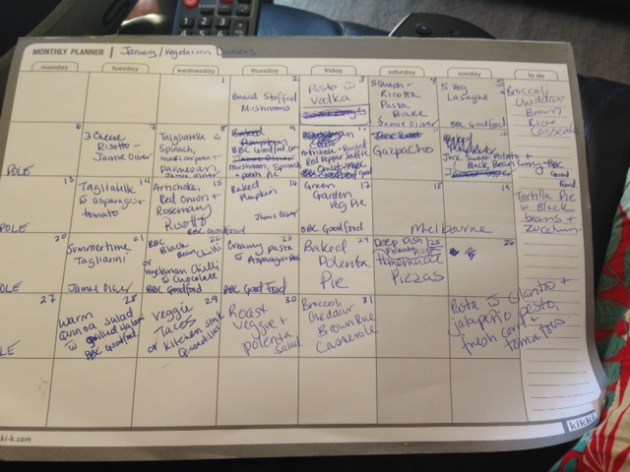 MONTHLY PLANNER January/Vegetarian Dinners
monday tuesday wednesday thursday friday saturday sunday to do
1
2
Baked Stuffed
Mushrooms
3
Pasta
Vodka
4
Squash +
Ricotta
Pasta
Bake
Jamie Oliver
5
5 Veg
Lasagne
BBC Goodfood
Broccoli
Cheddar
Brown
Rice
Casserole
6
POLE
7
3 Cheese
Risotto -
Jamie Oliver
8
Tagliatelle
Spinach,
mascarpone +
Parmesan
Jamie Oliver
9
Baked
Pumpkin
BBC Goodfood or
Jamie Oliver
mushroom, Spinach
10
Artichoke +
Red Pepper
11
Gazpacho
12
Baked
Sweet Potato +
Black Bean Curry - BBC
Good
Food
Tortilla Pie
w Black
beans +
Zucchini
13
POLE
14
Tagliatelle
asparagus
tomato
15
Artichoke,
Red Onion +
Rosemary
Risotto
BBC Goodfood
16
Baked
Pumpkin
Jamie Oliver
17
Green
Garden
Veg Pie
BBC Goodfood
18
19
Melbourne
20
OLE
21
Summertime
Taglianni
Jamie Oliver
22
BBC
Black
Bean Chilli
or
Vegetarian Chilli
Chocolate
BBC Goodfood
23
Creamy pasta
Asparagus
BBC Good Food
24
Baked
Polenta
Pie
25
Deep Dish
Polenta
Pizzas
26
27
LE
28
Warm
Quinoa Salad
grilled Haloumi
BBC Goodfood
29
Veggie
Tacos
or Kitchen Sink
Quesadillas
30
Roast
Veggie +
polenta
Salad
31
Broccoli
Cheddar
Brown Rice
Casserole
Pasta Cilantro +
jalapeño pesto,
fresh corn +
tomatoes
ki-k.com
kikki